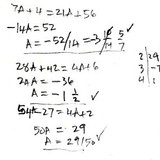 7A + 4 = 21A + 56
-14A = 52
A = -52/14 = -3 10/14 5/7
28A + 42 = 4A + 6
24A = -36
A = -1 1/2
54A - 27 = 4A + 2
50A = 29
A = 29/50
2 | 29
3 | -7
4 |